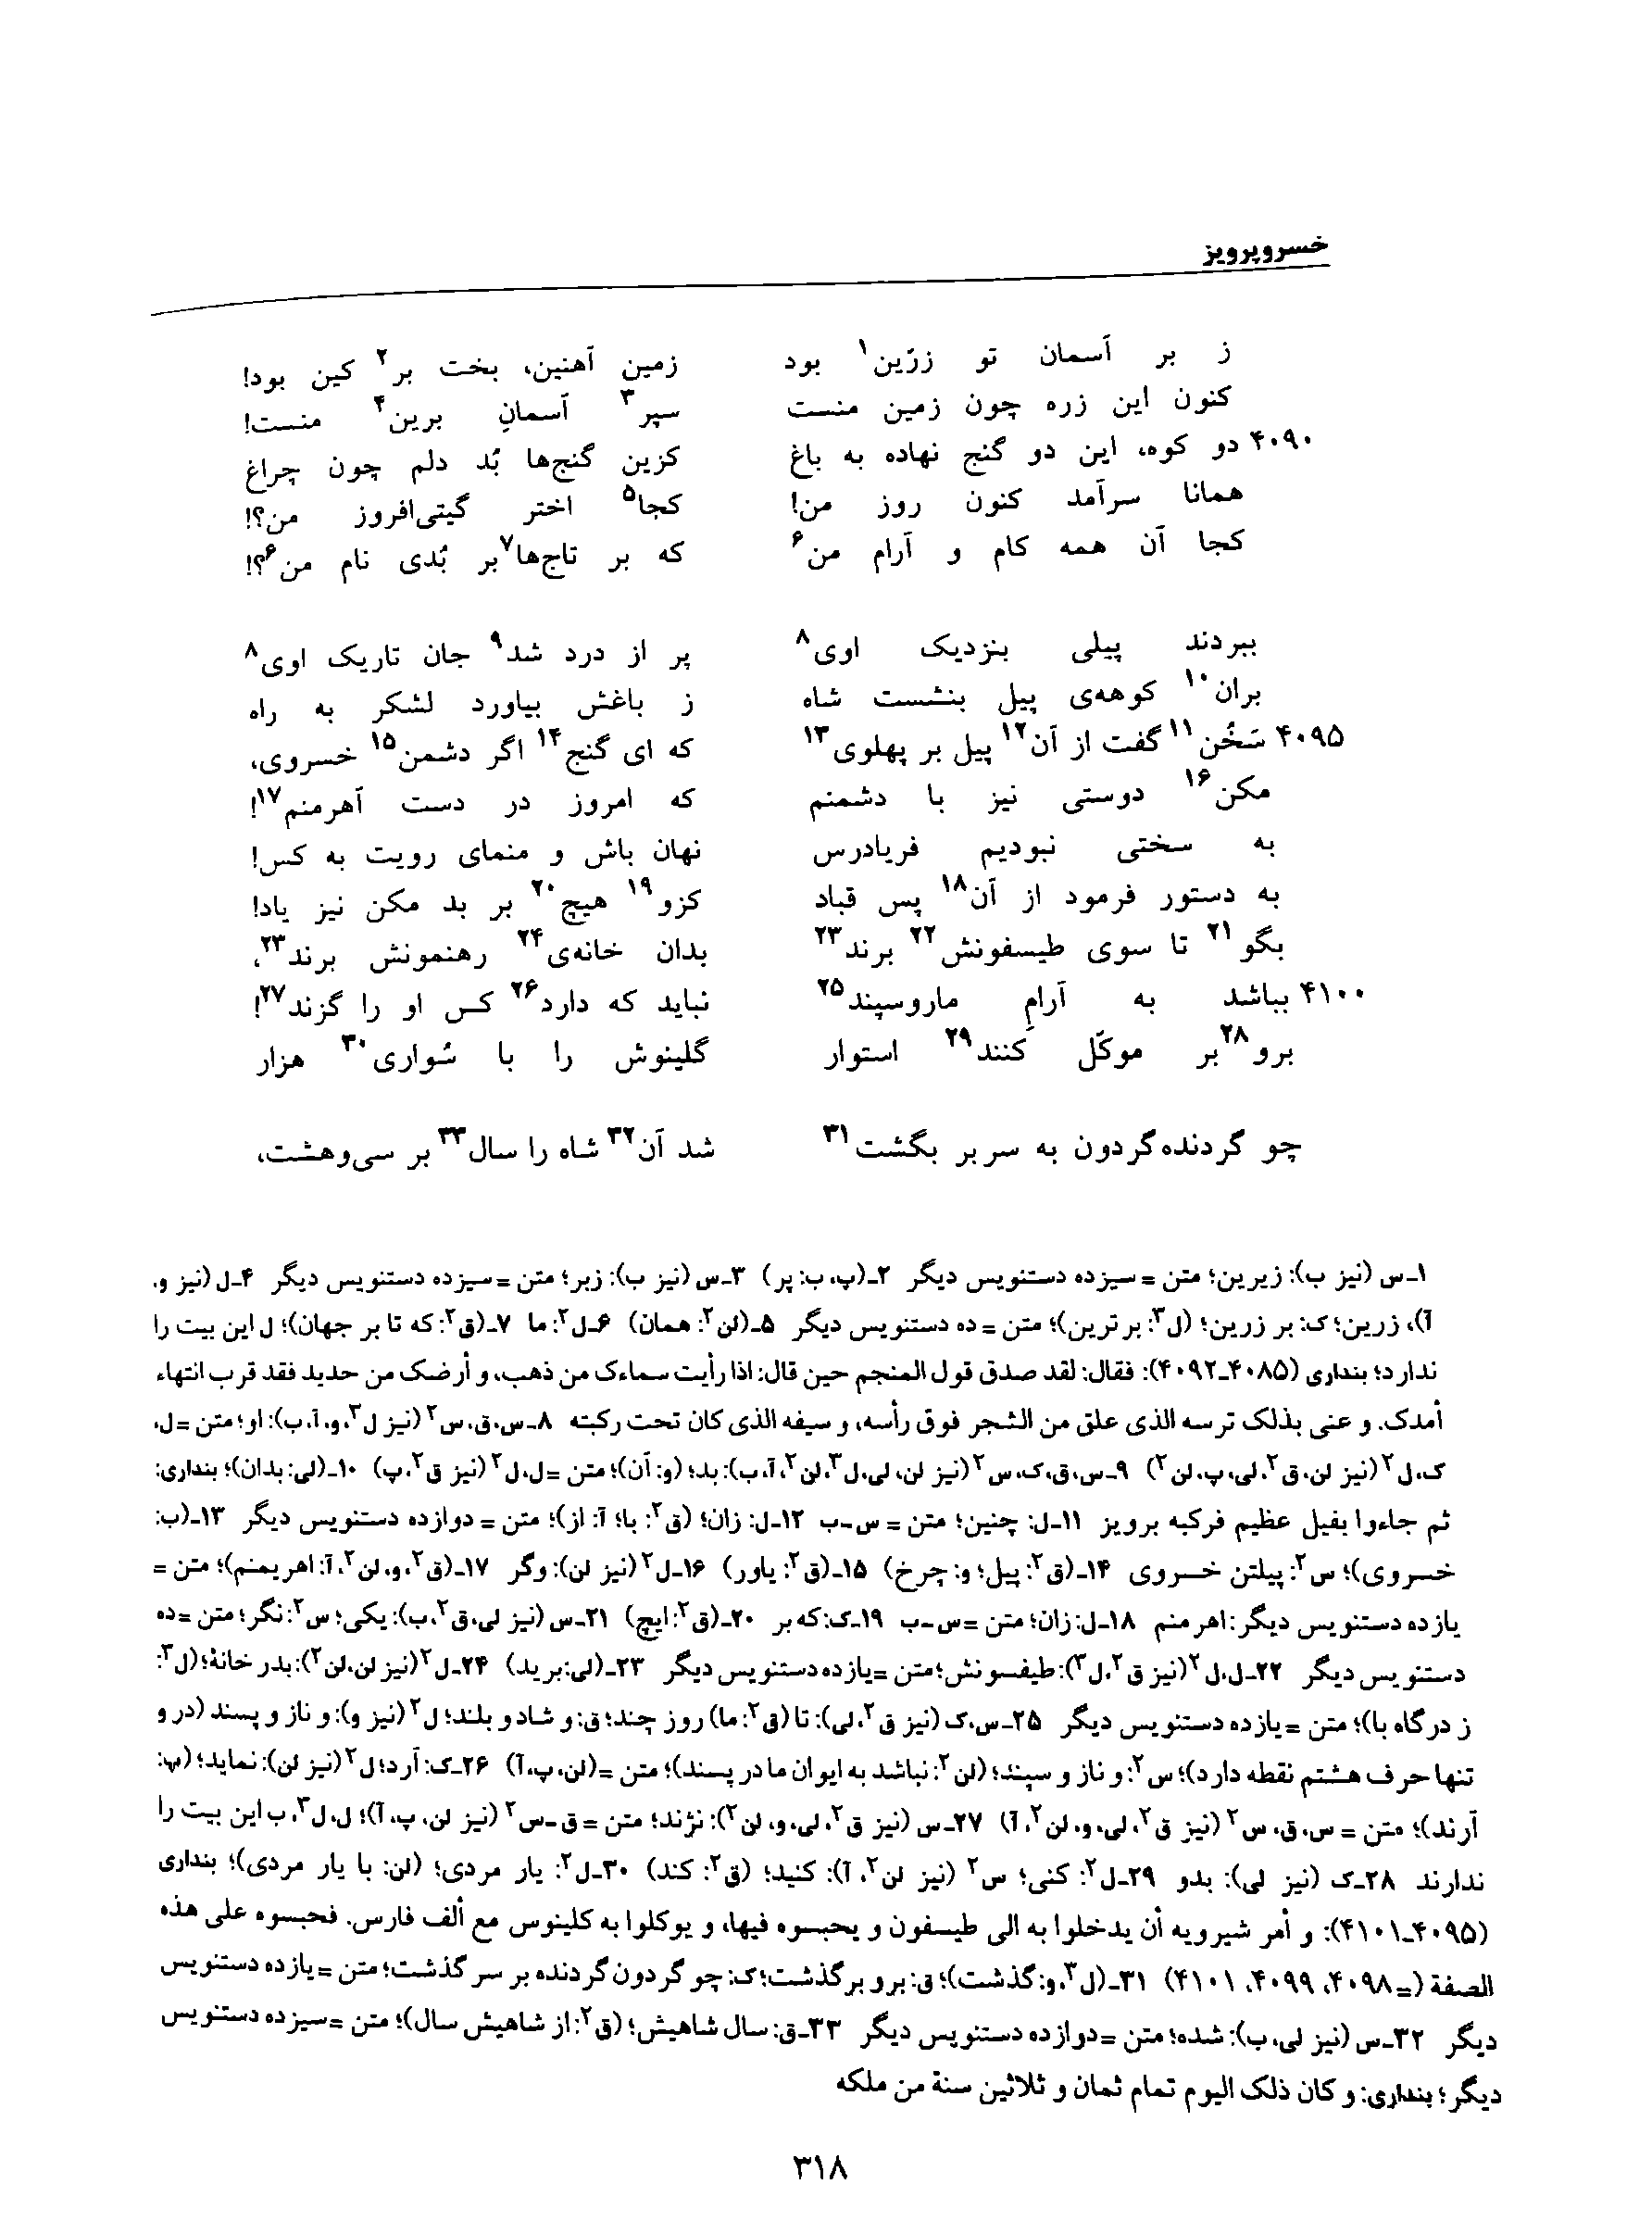 خسروپرویز
ز بر آسمان تو زرّین۱ بود زمین آهنین، بخت بر۲ کین بود!
کنون این زره چون زمین منست سپر۳ آسمانِ برین۴ منست!
۴۰۹۰ دو کوه، این دو گنج نهاده به باغ کزین گنج‌ها بُد دلم چون چراغ
همانا سرآمد کنون روز من! کجا۵ اختر گیتی‌افروز من؟!
کجا آن همه کام و آرام من۶ که بر تاج‌ها۷ بر بُدی نام من۶؟!
ببردند پیلی بنزدیک اوی۸ پر از درد شد۹ جان تاریک اوی۸
بران۱۰ کوهه‌ی پیل بنشست شاه ز باغش بیاورد لشکر به راه
۴۰۹۵ سَخُن۱۱ گفت از آن۱۲ پیل بر پهلوی۱۳ که ای گنج۱۴ اگر دشمن۱۵ خسروی،
مکن۱۶ دوستی نیز با دشمنم که امروز در دست آهرمنم۱۷!
به سختی نبودیم فریادرس نهان باش و منمای رویت به کس!
به دستور فرمود از آن۱۸ پس قباد کزو۱۹ هیچ۲۰ بر بد مکن نیز یاد!
بگو۲۱ تا سوی طیسفونش۲۲ برند۲۳ بدان خانه‌ی۲۴ رهنمونش برند۲۳،
۴۱۰۰ بباشد به آرامِ ماروسپند۲۵ نباید که دارد۲۶ کس او را گزند۲۷!
برو۲۸ بر موکّل کنند۲۹ استوار گلینوش را با سُواری۳۰ هزار
چو گردنده‌گردون به سر بر بگشت۳۱ شد آن۳۲ شاه را سال۳۳ بر سی‌وهشت،
۱ـ س (نیز ب): زیرین؛ متن = سیزده دستنویس دیگر ۲ـ (پ، ب: پر) ۳ـ س (نیز ب): زبر؛ متن = سیزده دستنویس دیگر ۴ـ ل (نیز و،
آ)، زرین؛ ک: بر زرین؛ (ل۳: برترین)؛ متن = ده دستنویس دیگر ۵ـ (لن۲: همان) ۶ـ ل۲: ما ۷ـ (ق۲: که تا بر جهان)؛ ل این بیت را
ندارد؛ بنداری (۴۰۸۵ـ۴۰۹۲): فقال: لقد صدق قول المنجم حین قال: اذا رأیت سماءک من ذهب، و أرضک من حدید فقد قرب انتهاء
أمدک. و عنی بذلک ترسه الذی علق من الشجر فوق رأسه، و سیفه الذی کان تحت رکبته ۸ـ س، ق، س۲ (نیز ل۳، و، آ، ب): او؛ متن = ل،
ک، ل۲ (نیز لن، ق۲، لی، پ، لن۲) ۹ـ س، ق، ک، س۲ (نیز لن، لی، ل۳، لن۲، آ، ب): بد؛ (و: آن)؛ متن = ل، ل۲ (نیز ق۲، پ) ۱۰ـ (لی: بدان)؛ بنداری:
ثم جاءوا بفیل عظیم فرکبه برویز ۱۱ـ ل: چنین؛ متن = س ـ ب ۱۲ـ ل: زان؛ (ق۲: با؛ آ: از)؛ متن = دوازده دستنویس دیگر ۱۳ـ (ب:
خسروی)؛ س۲: پیلتن خسروی ۱۴ـ (ق۲: پیل؛ و: چرخ) ۱۵ـ (ق۲: یاور) ۱۶ـ ل۲ (نیز لن): وگر ۱۷ـ (ق۲، و، لن۲، آ: اهریمنم)؛ متن =
یازده دستنویس دیگر: اهرمنم ۱۸ـ ل: زان؛ متن = س ـ ب ۱۹ـ ک: که بر ۲۰ـ (ق۲: ایچ) ۲۱ـ س (نیز لی، ق۲، ب): یکی؛ س۲: نگر؛ متن = ده
دستنویس دیگر ۲۲ـ ل، ل۲ (نیز ق۲، ل۳): طیفسونش؛ متن = یازده دستنویس دیگر ۲۳ـ (لی: برید) ۲۴ـ ل۲ (نیز لن، لن۲): بدر خانهٔ؛ (ل۳:
ز درگاه با)؛ متن = یازده دستنویس دیگر ۲۵ـ س، ک (نیز ق۲، لی): تا (ق۲: ما) روز چند؛ ق: و شاد و بلند؛ ل۲ (نیز و): و ناز و پسند (در و
تنها حرف هشتم نقطه دارد)؛ س۲: و ناز و سپند؛ (لن۲: نباشد به ایوان ما در پسند)؛ متن = (لن، پ، آ) ۲۶ـ ک: آرد؛ ل۲ (نیز لن): نماید؛ (پ:
آرند)؛ متن = س، ق، س۲ (نیز ق۲، لی، و، لن۲، آ) ۲۷ـ س (نیز ق۲، لی، و، لن۲): نژند؛ متن = ق ـ س۲ (نیز لن، پ، آ)؛ ل، ل۳، ب این بیت را
ندارند ۲۸ـ ک (نیز لی): بدو ۲۹ـ ل۲: کنی؛ س۲ (نیز لن۲، آ): کنید؛ (ق۲: کند) ۳۰ـ ل۲: یار مردی؛ (لن: با یار مردی)؛ بنداری
(۴۰۹۵ـ۴۱۰۱): و أمر شیرویه أن یدخلوا به الی طیسفون و یحبسوه فیها، و یوکلوا به کلینوس مع ألف فارس. فحبسوه علی هذه
الصفة (= ۴۰۹۸، ۴۰۹۹، ۴۱۰۱) ۳۱ـ (ل۳، و: گذشت)؛ ق: برو برگذشت؛ ک: چو گردون گردنده بر سر گذشت؛ متن = یازده دستنویس
دیگر ۳۲ـ س (نیز لی، ب): شده؛ متن = دوازده دستنویس دیگر ۳۳ـ ق: سال شاهیش؛ (ق۲: از شاهیش سال)؛ متن = سیزده دستنویس
دیگر؛ بنداری: و کان ذلک الیوم تمام ثمان و ثلاثین سنة من ملکه
۳۱۸